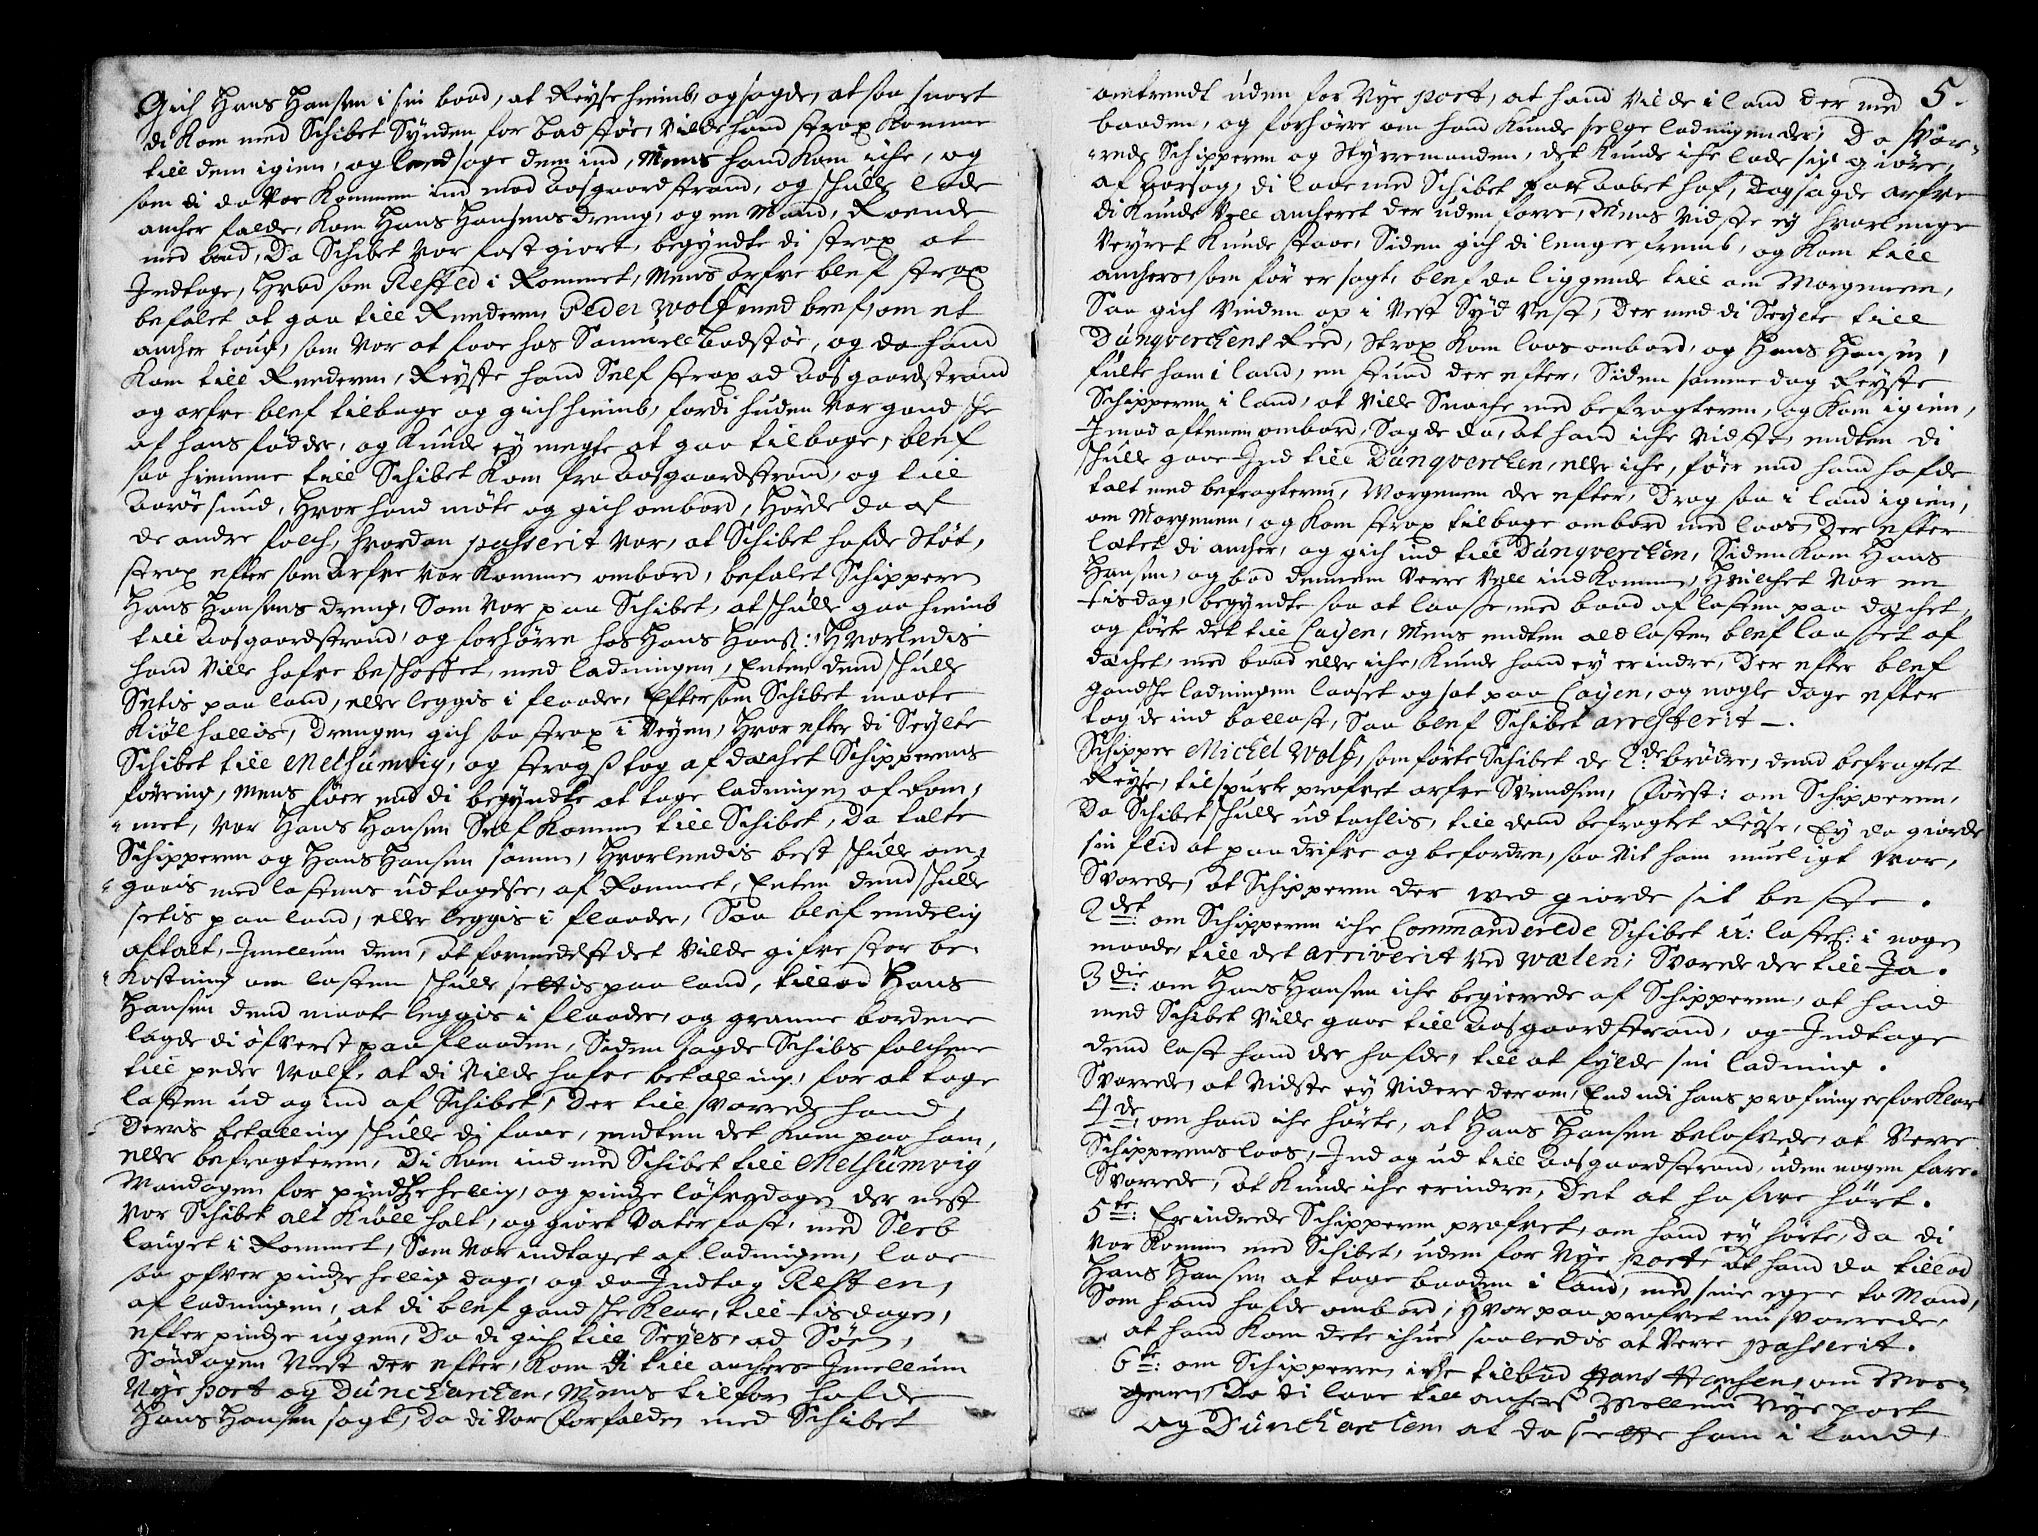 Gich Hans Hansen i sin baad, at Reyse hiemb, og sagde, at saa snart
di kom med Schibet Synden for Badstøe, Vilde hand strax komme
till dem igien, og laadsage dem ind, Mens hand kom iche, og
som di da Var kommen ind mod Aasgaardstrand, og schulle lade
ancher falde, kom Hans Hansens dreng, og en Mand, Roende
med baad, Da Schibet Var fastgiort, begyndte di strax at
Indtage, hvad som Resteed i Rommet, Mens Arfve blef strax
befalet at gaa till Rederen, Peder Wolf med bref om et
ancher toug, som Var at faae hos Samuell Badstøe, og da hand
kom till Rederen, Reyste hand Self strax ad Aasgaardstrand
og Arfve blef tilbage og gich hiemb, fordi huden Var gandsche
af hans fødder, og kunde ey megte at gaa tilbage, blef
saa hiemme till Schibet kom fra Aasgaardstrand, og till
Aarøesund, Hvor hand møte og gich ombord, Hørde da af
de andre folch, hvordan passerit Var, at Schibet hafde Støt,
strax efter som Arfve Var kommen ombord, befalet Schipperen
Hans Hansens dreng, Som Var paa Schibet, at schulle gaa hiemb
till Aasgaardstrand, og forhørre hos Hans Hanß: Hvorledis
hand Ville hafve beschottet med ladningen, Enten dend schulle
Settis paa land, eller leggis i flaade, Efter som Schibet maate
Kiølhallis, Drengen gich saa strax i Veyen, Hvor efter di Seylte
Schibet till Melsumvig, og strags tog af dachet Schipperens
føring, Mens føer end di begyndte at tage ladningen af Rom¬
met, Var Hans Hansen Self kommen till Schibet, Da talte
Schipperen og Hans Hansen samen, Hvorlendis best schulle om¬
gaais med lastens udtagelse, af Rommet, Enten dend schulle
settis paa land, eller leggis i flaade, Saa blef endelig
aftalt, Imellum dem, at formedelst det Vilde gifve stor be¬
kostning om lasten schulle settis paa land, tillod Hans
Hansen dend maate leggis i flaade, og granne bordene
lagde di øfverst paa flaaden, Siden sagde Schibs folchene
till peder Wolf, at di Vilde hafve betalling, for at tage
lasten ud og ind af Schibet, Der till svarrede hand,
Derris betalling schulle di faae, endten det kom paa ham,
eller befragteren, Di kom ind med Schibet till Melsumvig
Mandagen for pindtzehellig, og pindtze løfverdagen der nest
Var Schibet alt kiøllhalt, og giort Vaterfast, med Sleb
lauget i Rommet, Som Var indtaget af ladningen, laae
saa ofver pindtze hellig dage, og da Indtog Resten,
af ladningen, at di blef gandsche klar, till tisdagen,
efter pindtze uggen, Da di gich till Seyls, ad Søen,
Søndagen Nest der efter, kom di till anchers Imellum
Nye port og Dunckarcken, Mens tilforn hafde
Hans Hansen sagt, Da di Var forfalden med Schibet
5.
omtrendt uden for Nye port, at hand Vilde i land der med
baaden, og forhørre om hand kunde selge ladningen der, Da svar¬
rede Schipperen og Styrremanden, det kunde iche lade sig giøre,
af Aarsag, di laae med Schibet for aabet haf, dog sagde Arfve
di kunde Vell ancheret der uden forre, Mens Vidste ey hvorlenge
Veyret kunde staae, Siden gich di lenger fremb, og kom till
anchers, som før er sagt, blef da liggende till om Morgenen,
Saa gich Vinden op i Vest Syd Vest, Der med di Seylte till
Dunqverckens Reed, Strax kom laas ombord, og Hans Hansen,
fulte ham i land, en stund der efter, Siden samme dag Reyste
Schipperen i land, at Ville Snache med befragteren, og kom igien,
Imod aftenen ombord, Sagde da, at hand iche Vidste, endten di
schulle gaae Ind till Dunqvercken, eller iche, føer end hand hafde
talt med befragteren, Morgenen der efter, Drog saa i land igien,
om Morgenen, og kom strax tilbage ombord med laas, Der efter
lættet di ancher, og gich ind till Dunqvercken, Siden kom Hans
Hansen, og bad dennem Verre Vell indkommen, Hvilchet Var en
tisdag, begyndte saa at laasse, med baad af lasten paa dachet,
og førte det till Cayen, Mens endten ald lasten blef laasset af
dachet, med baad eller iche, kunde hand ey erindre, Der efter blef
gandsche ladningen laaset og sat paa Cayen, og nogle dage efter
tog de ind ballast, Saa blef Schibet arresterit —.
Schipper Michel Wolf, som førte Schibet de 2de brødre, dend befragtet
Reyse, tilspurte profvet Arfve Svendsen, Først: om Schipperen,
Da Schibet schulle udtachlis, till dend befragtet Reyse, Ey da giorde
sin flid at paadrifve og befordre, saa Vit ham mueligt Var,
Svarede, at Schipperen der ved giorde sit beste.
2det: om Schipperen iche Commanderede Schibet u: lastel: i nogen
maade, till det arriverit ved Walen; Svarede der till Ja.
3die: om Hans Hansen iche begierede af Schipperen, at hand
med Schibet Ville gaae till Aasgaardstrand, og Indtage
dend last hand der hafde, till at fylde sin ladning.
Svarrede, at Vidste ey Videre der om, End udi hans profning er forklar
4de om hand iche hørte, at Hans Hansen belofvede, at Verre
Schipperens laas, Ind og ud till Aasgaardstrand, uden nogen fare.
Svarrede, at kunde iche erindre, Det at hafve hørt.
5te: Erindrede Schipperen profvet, om hand ey hørte, Da di
Var kommen med Schibet, uden for Nye port, at hand da tillod
Hans Hansen at tage baaden i land, med sine egne to Mand,
Som hand hafde ombord; Hvor paa profvet nu svarrede,
at hand kom dete ihue, saaledis at Verre passerit.
6te: om Schipperen iche tilbød Hans Hansen, om Mor¬
genen, Da di laae till anchers Mellum Nye port
og Dunckarcken at da sette ham i land,